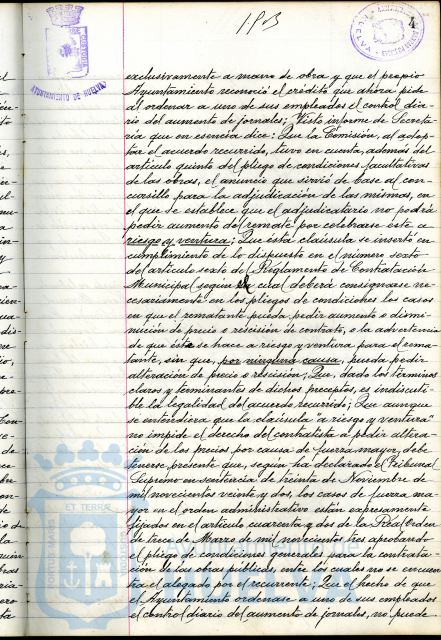 1903
4
exclusivamente a mano de obra y que el propio
Ayuntamiento reconoció el crédito que ahora pide
al ordenar a uno de sus empleados el control dia-
rio del aumento de jornales; Visto informe de Secreta-
ría que en esencia dice: Que la Comisión, al adop-
tar el acuerdo recurrido, tuvo en cuenta, además del
artículo quinto del pliego de condiciones facultativas
de las obras, el anuncio que sirvió de base al con-
cursillo para la adjudicación de las mismas, en
el que se establece que el adjudicatario no podrá
pedir aumento del remate por celebrarse éste a
riesgo y ventura; Que esta clausula se insertó en
cumplimiento de lo dispuesto en el número sexto
del artículo sexto del Reglamento de Contratación
Municipal según el cual deberá consignarse ne-
cesariamente en los pliegos de condiciones los casos
en que el rematante pueda pedir aumento o dismi-
nución de precio o rescisión de contrato, o la advertencia
de que éste se hace a riesgo y ventura para el rema-
tante, sin que, por ninguna causa, pueda pedir
alteración de precio o rescisión; Que, dado los términos
claros y terminantes de dichos preceptos, es indiscuti-
ble la legalidad del acuerdo recurrido; Que aunque
se entendiera que la clausula "a riesgo y ventura"
no impide el derecho del contratista a pedir altera-
ción de los precios por causa de fuerza mayor, debe
tenerse presente que, según ha declarado el Tribunal
Supremo en sentencia de treinta de Noviembre de
mil novecientos veinte y dos, los casos de fuerza ma-
yor en el orden administrativo están expresamente
fijados en el artículo cuarenta y dos de la Real Orden
de trece de Marzo de mil novecientos tres aprobando
el pliego de condiciones generales para la contrata-
ción de las obras públicas, entre los cuales no se encuen-
tra el alegado por el recurrente; Que el hecho de que
el Ayuntamiento ordenase a uno de sus empleados
el control diario de aumento de jornales, no puede
ET TERRA